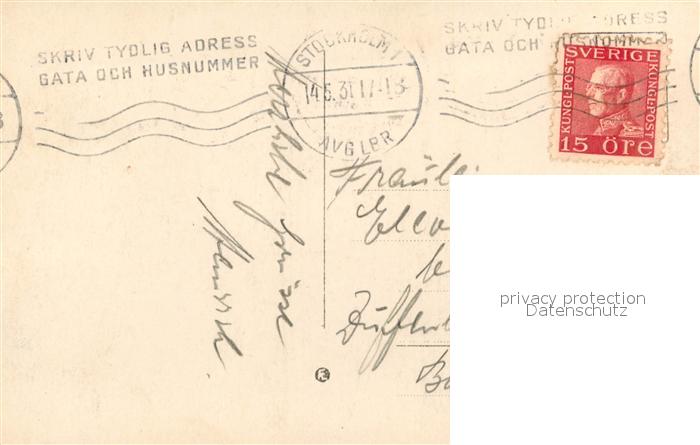 SKRIV TYDLIG ADRESS
GATA OCH HUSNUMMER
STOCKHOLM 1
14.5.31 17-18
AVG LBR
SKRIV TYDLIG ADRESS
GATA OCH HUSNUMMER
SVERIGE
KUNGL-POST
KUNGL-POST
15 ÖRE
Herzliche Grüsse
Heinrich
Fräulei
privacy protection
Datenschutz